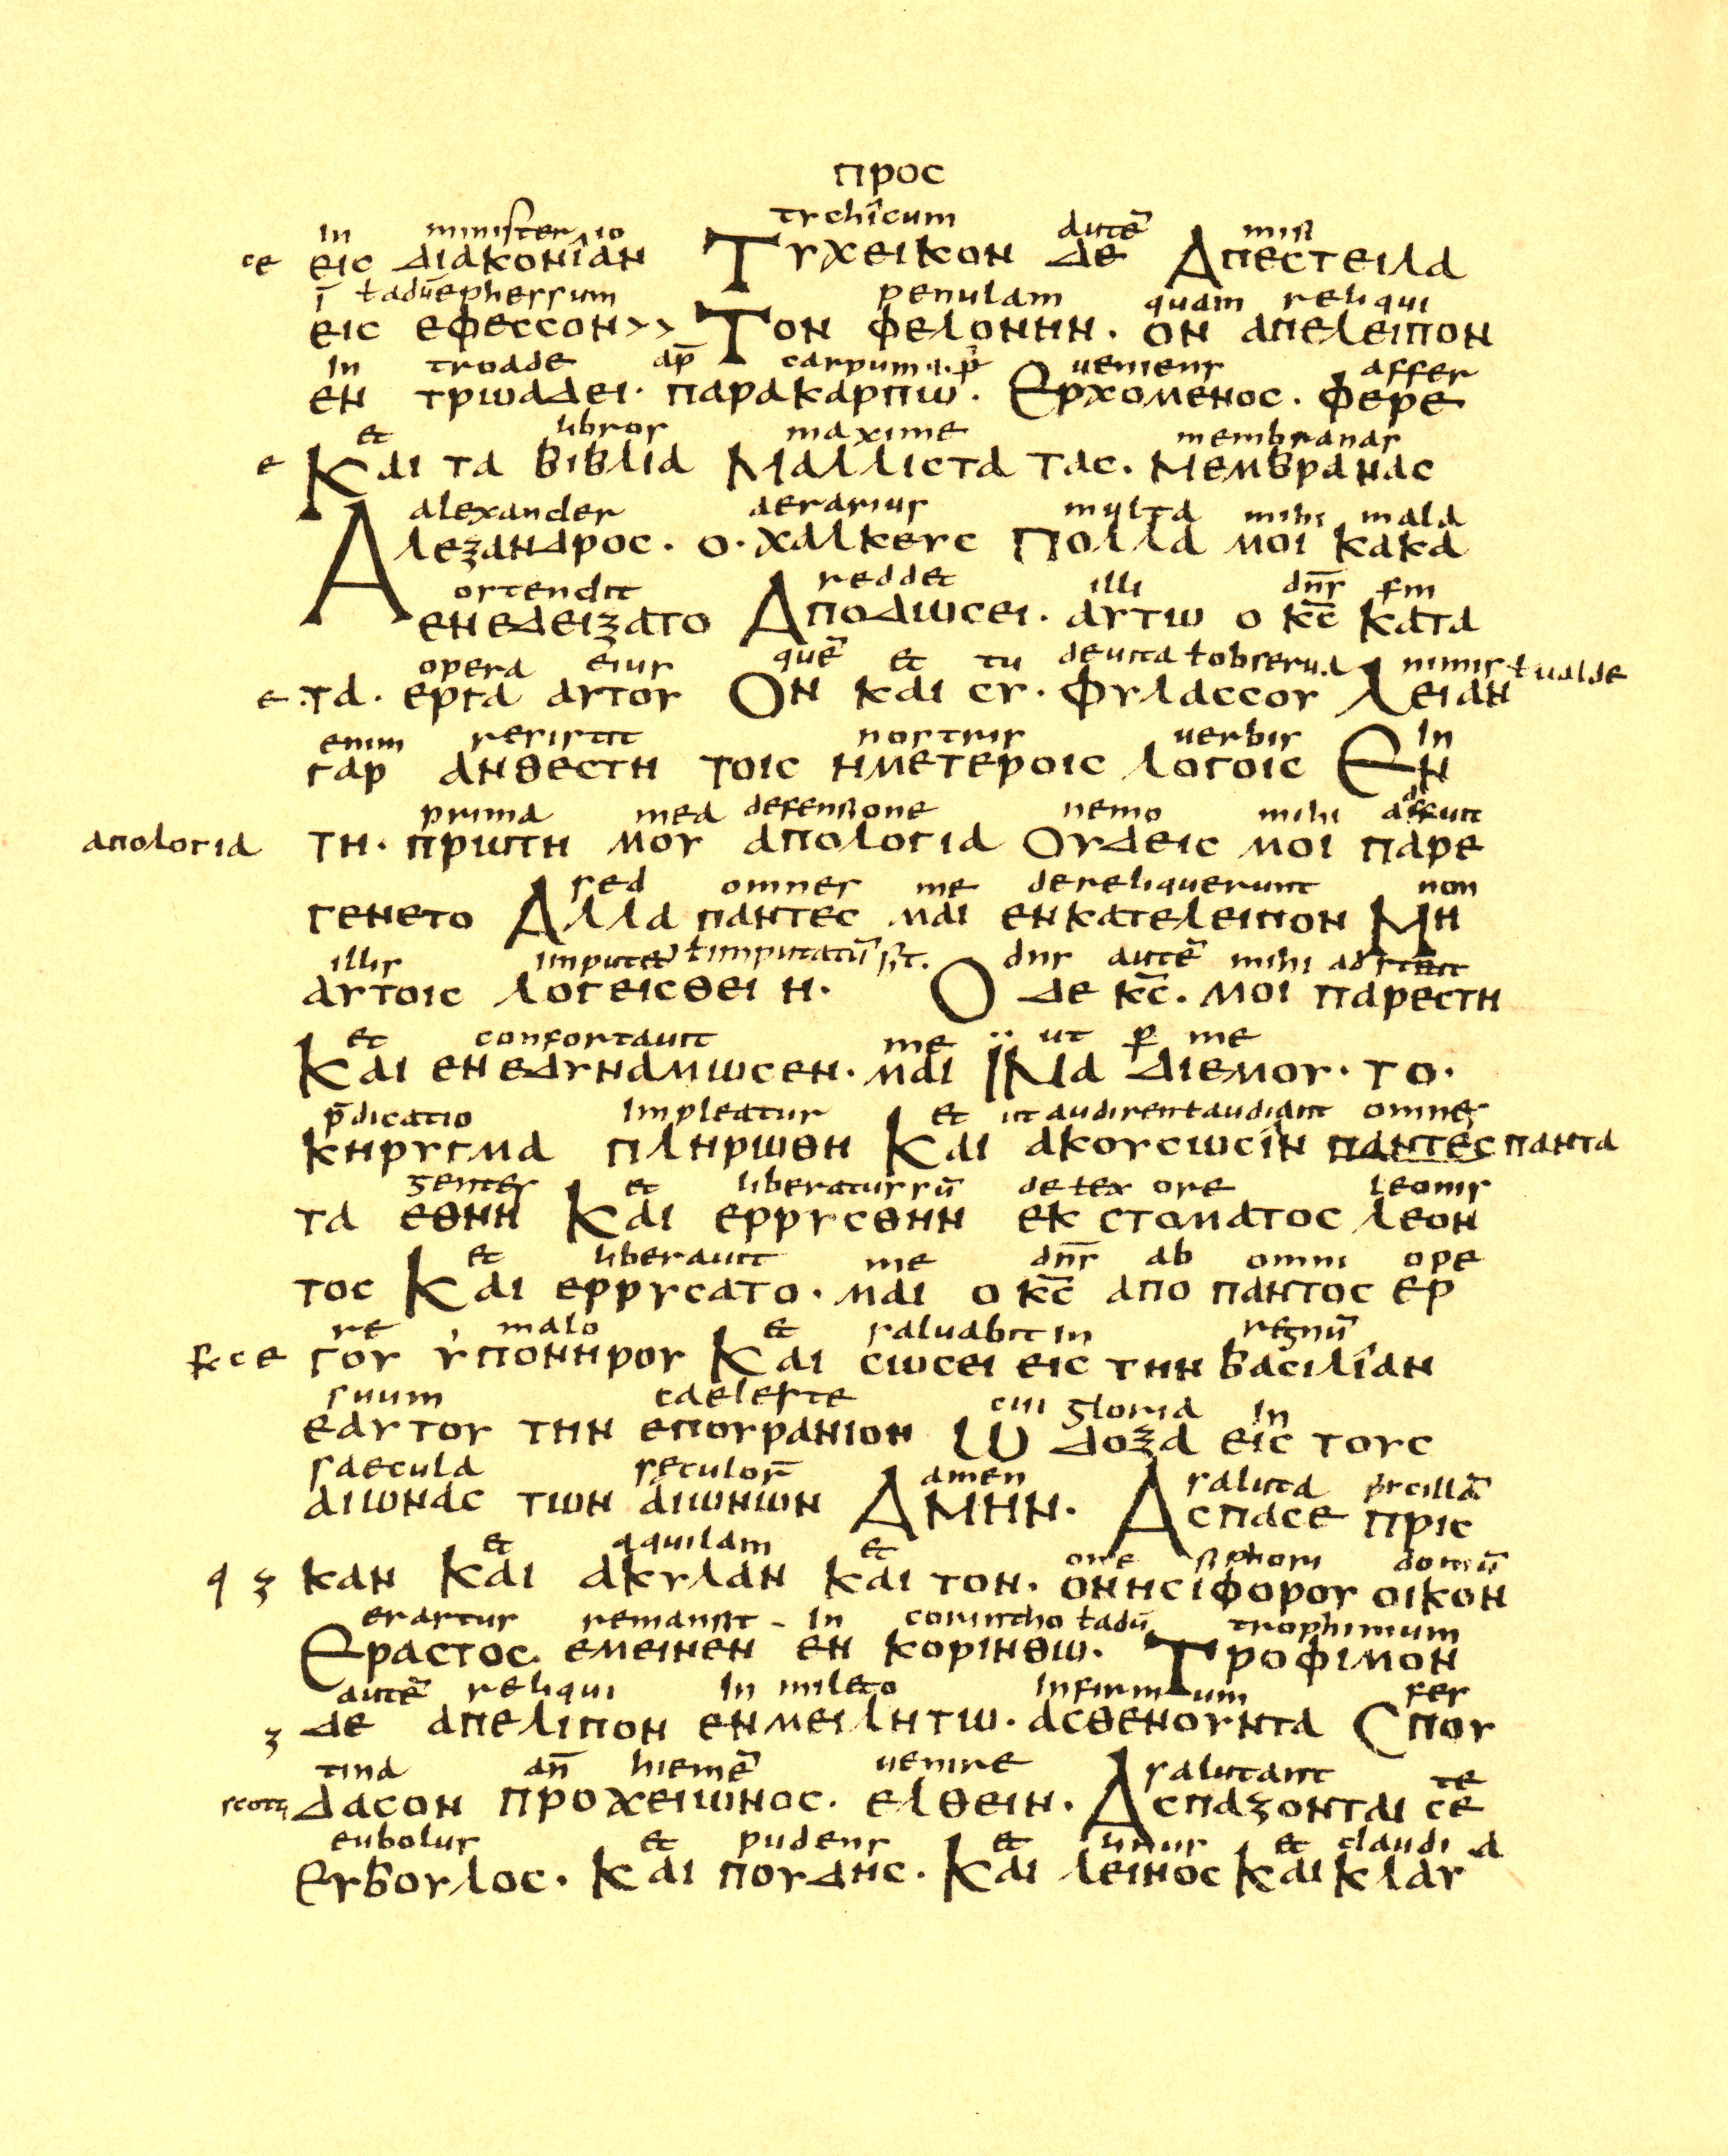 προς
trchicum
in ministerio autē misi
ce εις διακονίαν Τυχεικον δε Απεστειλα
ī ł adūephessum penulam quam reliqui
εις εφεσσον>> Τον φελονην. ον απελειπον
in troade ap̄ carpum veniens affer
εν τρωαδει. παρακαρπω. Ερχομενος. φερε
et libros maxime membranas
e Και τα βιβλια Μαλλιστα τας. Μεμβρανας
alexander aerarius multa mihi mala
Αλεξανδρος. ο. χαλκευς Πολλα μοι κακα
ostendit reddet illi dn̄s sm
ενεδειξατο Αποδωσει. αυτω ο κ̄ς κατα
opera eius quē et tu deuita ł obserua nimis ł ualde
e τα. εργα αυτου Ον και συ. φυλασσου Λειαν
enim resistit nostris uerbis in
γαρ ανθεστη τοις ημετεροις λογοις Εν
prima mea defensione nemo mihi affuit
απολογια τη. πρωτη μου απολογια Ουδεις μοι παρε
sed omnes me dereliquerunt non
γενετο Αλλα παντες μαι ενκατελειπον Μη
illis imputet ł imputatū sit. dns autē mihi adstetit
αυτοις λογεισθει η. Ο δε κ̄ς. μοι παρεστη
et confortauit me ut p me
Και ενεδυναμωσεν. μαι ϊΝα διεμου. το.
p̄dicatio impleatur et ut audirent audiant omnes
κηρυγμα πληρωθη Και ακουσωσιν παντες παντα
gentes et liberatus sū de ł ex ore leonis
τα εθνη Και ερρυσθην εκ στοματος λεον
et liberauit me dn̄s ab omni ope
τος Και ερρυσατο. μαι ο κ̄ς απο παντος ερ
re malo et saluabit in regnū
ce γου υπονηρου Και σωσει εις την βασιλίαν
suum caeleste cui gloria in
εαυτου την επουρανιον Ω δοξα εις τους
saecula seculor̄ amen saluta priscillā
αιωνας των αιωνων ΑΜΗΝ. Ασπασε πρις
et aquilam et onesiphori domū
καν Και ακυλαν Και τον. ονησιφορου οικον
erastus remansit in corintho ł adū trophimum
Εραστος. εμεινεν εν κορινθω. Τροφιμον
autē reliqui in mileto infirmum fes
δε απελιπον ενμειλητω. ασθενουντα Σπου
tina an̄ hiemē uenire salutant te
δασον προχειωνος. ελθειν. Ασπαζονται σε
eubolus et pudens et linus et claudia
Ευβουλος. Και πουδης. Και λεινος Και κλαυ